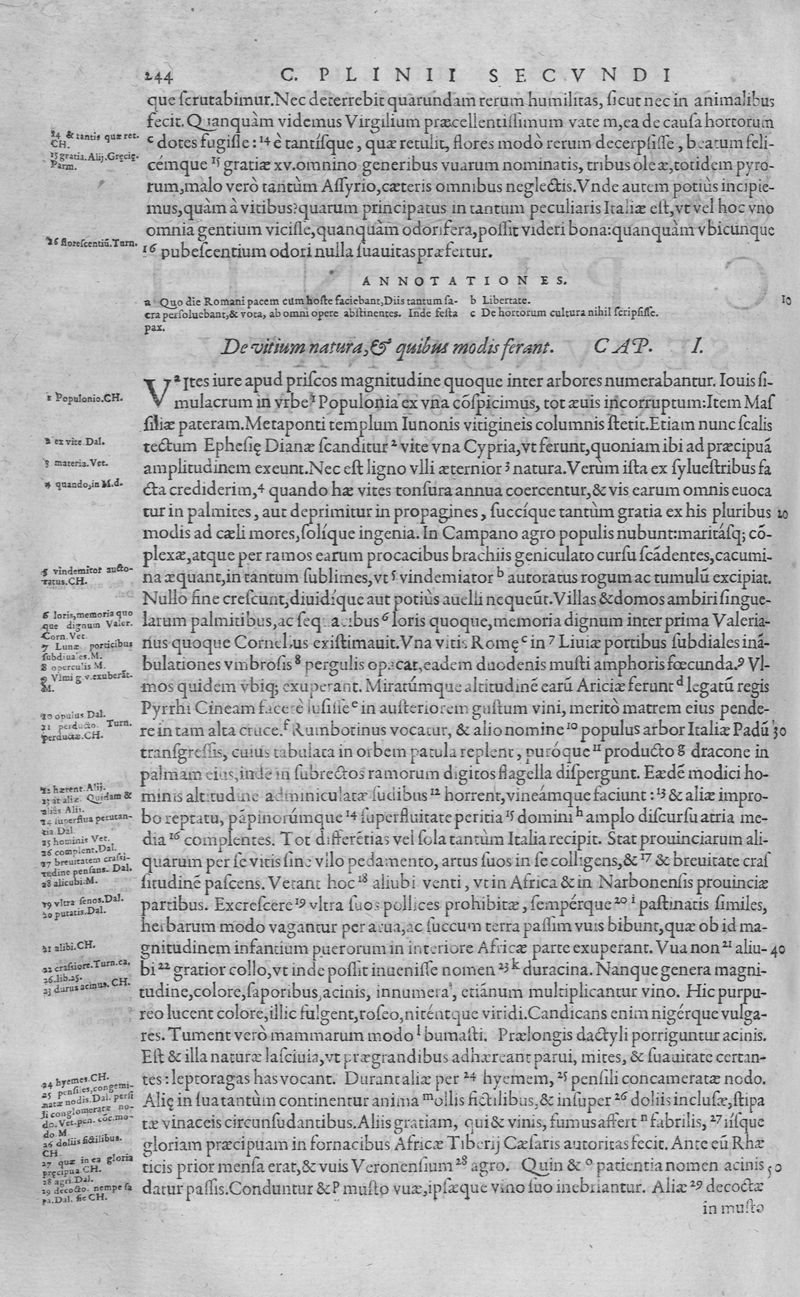 244 C. PLINII SECVNDI
que ſcrutabimur.Nec deterrebit quarundam rerum humilitas, ſicut nec in animalibus
fecit. Quanquàm videmus Virgilium præcellentiſſimum vatem,ea de cauſa hortorum
24 & tantis quæ ret. CH.
ᶜ dotes fugiſſe: ¹⁴ è tantíſque, quæ retulit, flores modò rerum decerpſiſſe, beatum feli-
15 gratia.Alij.Gręcię. Parm.
cémque ¹⁵ gratiæ xv.omnino generibus vuarum nominatis, tribus oleæ,totidem pyro-
rum,malo verò tantùm Aſſyrio,cæteris omnibus neglectis.Vnde autem potiùs incipie-
mus,quàm à vitibus?quarum principatus in tantum peculiaris Italiæ eſt,vt vel hoc vno
omnia gentium viciſſe,quanquàm odorifera,poſſit videri bona:quanquàm vbicunque
16 floreſcentiũ.Turn.
¹⁶ pubeſcentium odori nulla ſuauitas præfertur.
ANNOTATIONES.
a Quo die Romani pacem cum hoſte faciebant,Diis tantum ſa-
cra perſoluebant,& vota, ab omni opere abſtinentes. Inde feſta
pax.
b Libertate. 10
c De hortorum cultura nihil ſcripſiſſe.
De vitium natura,& quibus modis ferant. CAP. I.
Vᵃ Ites iure apud priſcos magnitudine quoque inter arbores numerabantur. Iouis ſi-
1 Populonio.CH.
mulacrum in vrbe ¹ Populonia ex vna cõſpicimus, tot æuis incorruptum:Item Maſ
ſiliæ pateram.Metaponti templum Iunonis vitigineis columnis ſtetit.Etiam nunc ſcalis
2 ex vite.Dal.
tectum Epheſię Dianæ ſcanditur ² vite vna Cypria,vt ferunt,quoniam ibi ad præcipuã
3 materia.Vet.
amplitudinem exeunt.Nec eſt ligno vlli æternior ³ natura.Verùm iſta ex ſylueſtribus fa
4 quando,in M.d.
cta crediderim,⁴ quando hæ vites tonſura annua coercentur,& vis earum omnis euoca
tur in palmites, aut deprimitur in propagines, ſuccíque tantùm gratia ex his pluribus 20
modis ad cæli mores,ſolíque ingenia. In Campano agro populis nubunt:maritáſq; cõ-
plexæ,atque per ramos earum procacibus brachiis geniculato curſu ſcãdentes,cacumi-
5 vindemitor aucto-
ratus.CH.
na æquant,in tantum ſublimes,vt ⁵ vindemiator ᵇ autoratus rogum ac tumulũ excipiat.
Nullo fine creſcunt,diuidíque aut potiùs auelli nequeũt.Villas & domos ambiri ſingue-
6 loris,memoria quo
que dignum Valer.
Corn.Vet.
larum palmitibus,ac ſeq acibus ⁶ loris quoque,memoria dignum inter prima Valeria-
7 Lunæ porticibus
ſubdiuales.M.
nus quoque Cornelius exiſtimauit.Vna vitis Romę ᶜ in ⁷ Liuiæ portibus ſubdiales inã-
8 operculis M.
9 Vlmi g v.exuberãt.
M.
bulationes vmbroſis ⁸ pergulis opacat,eadem duodenis muſti amphoris fœcunda.⁹ Vl-
mos quidem vbiq; exuperant. Miratúmque altitudinẽ earũ Ariciæ ferunt ᵈ legatũ regis
Pyrrhi Cineam facetè luſiſſe ᵉ in auſteriorem guſtum vini, meritò matrem eius pende-
10 opulus.Dal.
11 perducto. Turn.
perductæ.CH.
re in tam alta cruce.ᶠ Rumbotinus vocatur, & alio nomine ¹⁰ populus arbor Italiæ Padũ 30
tranſgreſſis, cuius tabulata in orbem patula replent, puróque ¹¹ producto ᵍ dracone in
palmam eius,inde in ſubrectos ramorum digitos flagella diſpergunt. Eædẽ modici ho-
12 hærent.Alij.
13 at aliæ. Quidam &
aliàs Alij.
minis altitudine adminiculatæ ſudibus ¹² horrent,vineámque faciunt: ¹³ & aliæ impro-
14 ſuperflua perutan-
tia Dal
bo reptatu, pãpinorúmque ¹⁴ ſuperfluitate peritia ¹⁵ domini ʰ amplo diſcurſu atria me-
15 hominis Vet.
16 complent.Dal.
17 breuitatem craſsi-
tudine penſans. Dal.
dia ¹⁶ complentes. Tot differẽtias vel ſola tantùm Italia recipit. Stat prouinciarum ali-
quarum per ſe vitis ſine vllo pedamento, artus ſuos in ſe colligens,& ¹⁷ & breuitate craſ
18 alicubi.M.
ſitudinẽ paſcens. Vetant hoc ¹⁸ aliubi venti, vt in Africa & in Narbonenſis prouinciæ
19 vltra ſenos.Dal.
20 putatis.Dal.
partibus. Excreſcere ¹⁹ vltra ſuos pollices prohibitæ, ſempérque ²⁰ ⁱ paſtinatis ſimiles,
herbarum modo vagantur per arua,ac ſuccum terra paſſim vuis bibunt,quæ ob id ma-
21 alibi.CH.
gnitudinem infantium puerorum in interiore Africæ parte exuperant. Vua non ²¹ aliu- 40
22 craſsiore.Turn.ea.
26.lib.25.
bi ²² gratior collo,vt inde poſſit inueniſſe nomen ²³ ᵏ duracina. Nanque genera magni-
23 durus acinus. CH.
tudine,colore,ſaporibus,acinis, innumera, etiãnum multiplicantur vino. Hic purpu-
reo lucent colore,illic fulgent,roſeo,niténtque viridi.Candicans enim nigérque vulga-
res. Tument verò mammarum modo ˡ bumaſti. Prælongis dactyli porriguntur acinis.
Eſt & illa naturæ laſciuia,vt prægrandibus adhæreant parui, mites, & ſuauitate certan-
24 hyemes.CH.
25 penſiles,congemi-
natæ nodis.Dal. penſi
li conglomeratæ no-
do.Vet.pen. cõc.mo-
do M.
tes:leptoragas has vocant. Durant aliæ per ²⁴ hyemem, ²⁵ penſili concameratæ nodo.
Alię in ſua tantùm continentur anima ᵐ ollis fictilibus,& inſuper ²⁶ doliis incluſæ,ſtipa
26 doliis fictilibus.
CH
tæ vinaceis circunſudantibus.Aliis gratiam, qui & vinis, fumus affert ⁿ fabrilis, ²⁷ iíſque
27 quæ in ea gloria
præcipua CH.
gloriam præcipuam in fornacibus Africæ Tiberij Cæſaris autoritas fecit. Ante eũ Rhæ
28 agri.Dal.
ticis prior menſa erat,& vuis Veronenſium ²⁸ agro. Quin & ᵒ patientia nomen acinis 50
29 decocto. nempe ſa
pa.Dal. ſic CH.
datur paſſis.Conduntur & ᵖ muſto vuæ,ipſæque vino ſuo inebriantur. Aliæ ²⁹ decoctæ
in muſto